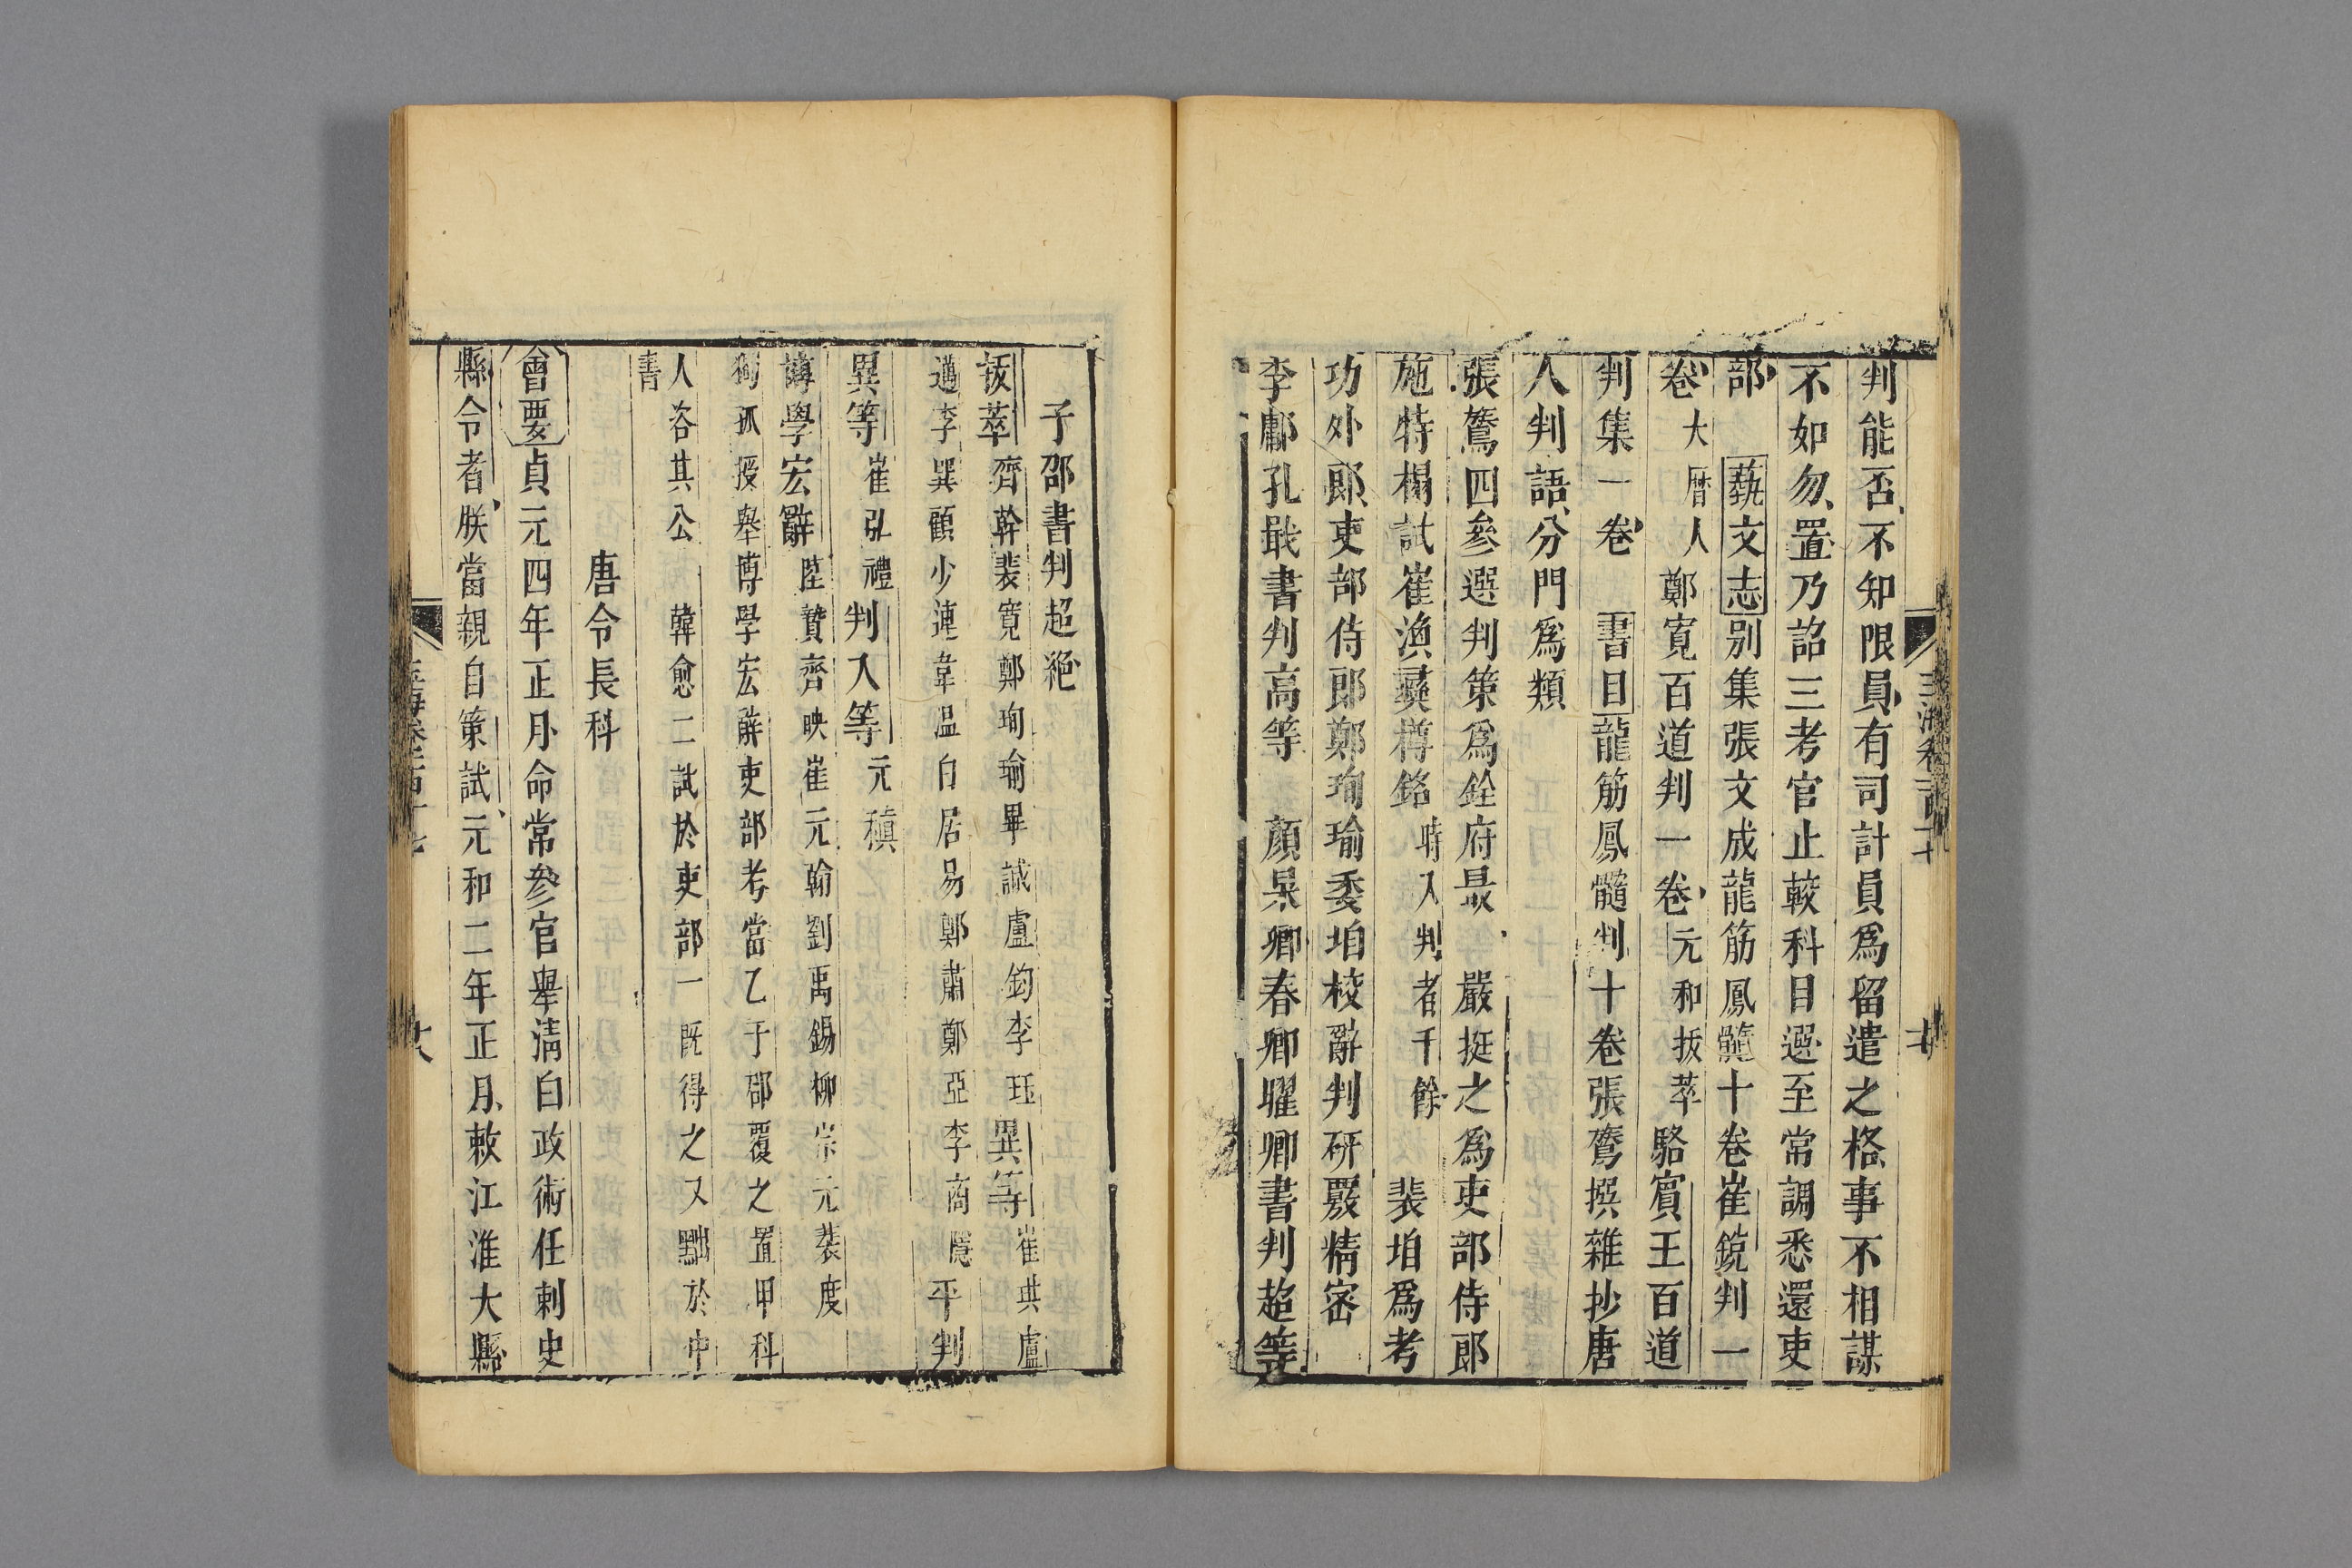 判能否不知限員有司計員爲留遣之格事不相謀
不如勿置乃詔三考官止較科目選至常調悉還吏
部 藝文志別集張文成龍筋鳳髓十卷崔銳判一
卷大曆人鄭寬百道判一卷元和拔萃駱賓王百道
判集一卷 書目龍筋鳳髓判十卷張鷟撰雜抄唐
人判語分門爲類
張鷟四參選判策爲銓府最 嚴挺之爲吏部侍郎
施特榻試崔渙彝樽銘時入判者千餘 裴垍爲考
功外郎吏部侍郎鄭珣瑜委垍校辭判研覈精密
李鄘孔戢書判高等 顏杲卿春卿曜卿書判超等
子邵書判超絕
拔萃齊幹裴寬鄭珣瑜畢諴盧鈞李珏異等崔琪盧
邁李巽顧少連韋温白居易鄭肅鄭亞李商隱平判
異等崔弘禮判入等元稹
博學宏辭陸贄齊映崔元翰劉禹錫柳宗元裴度
獨孤授舉博學宏辭吏部考當乙于邵覆之置甲科
人咨其公 韓愈二試於吏部一既得之又黜於中
書
唐令長科
會要貞元四年正月命常參官舉清白政術任刺史
縣令者朕當親自策試元和二年正月敕江淮大縣